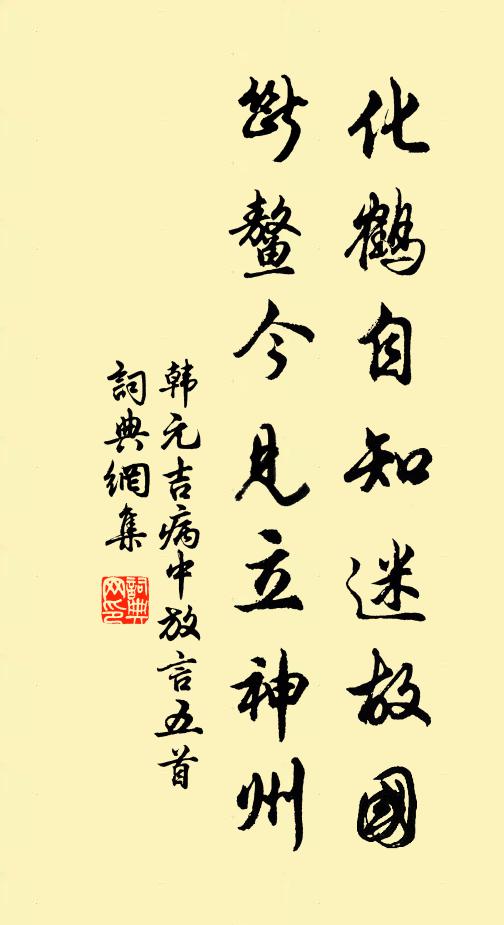 化鶴自知迷故國
斷鰲今見立神州
韩元吉病中放言五首
詞典網集
詞典网印